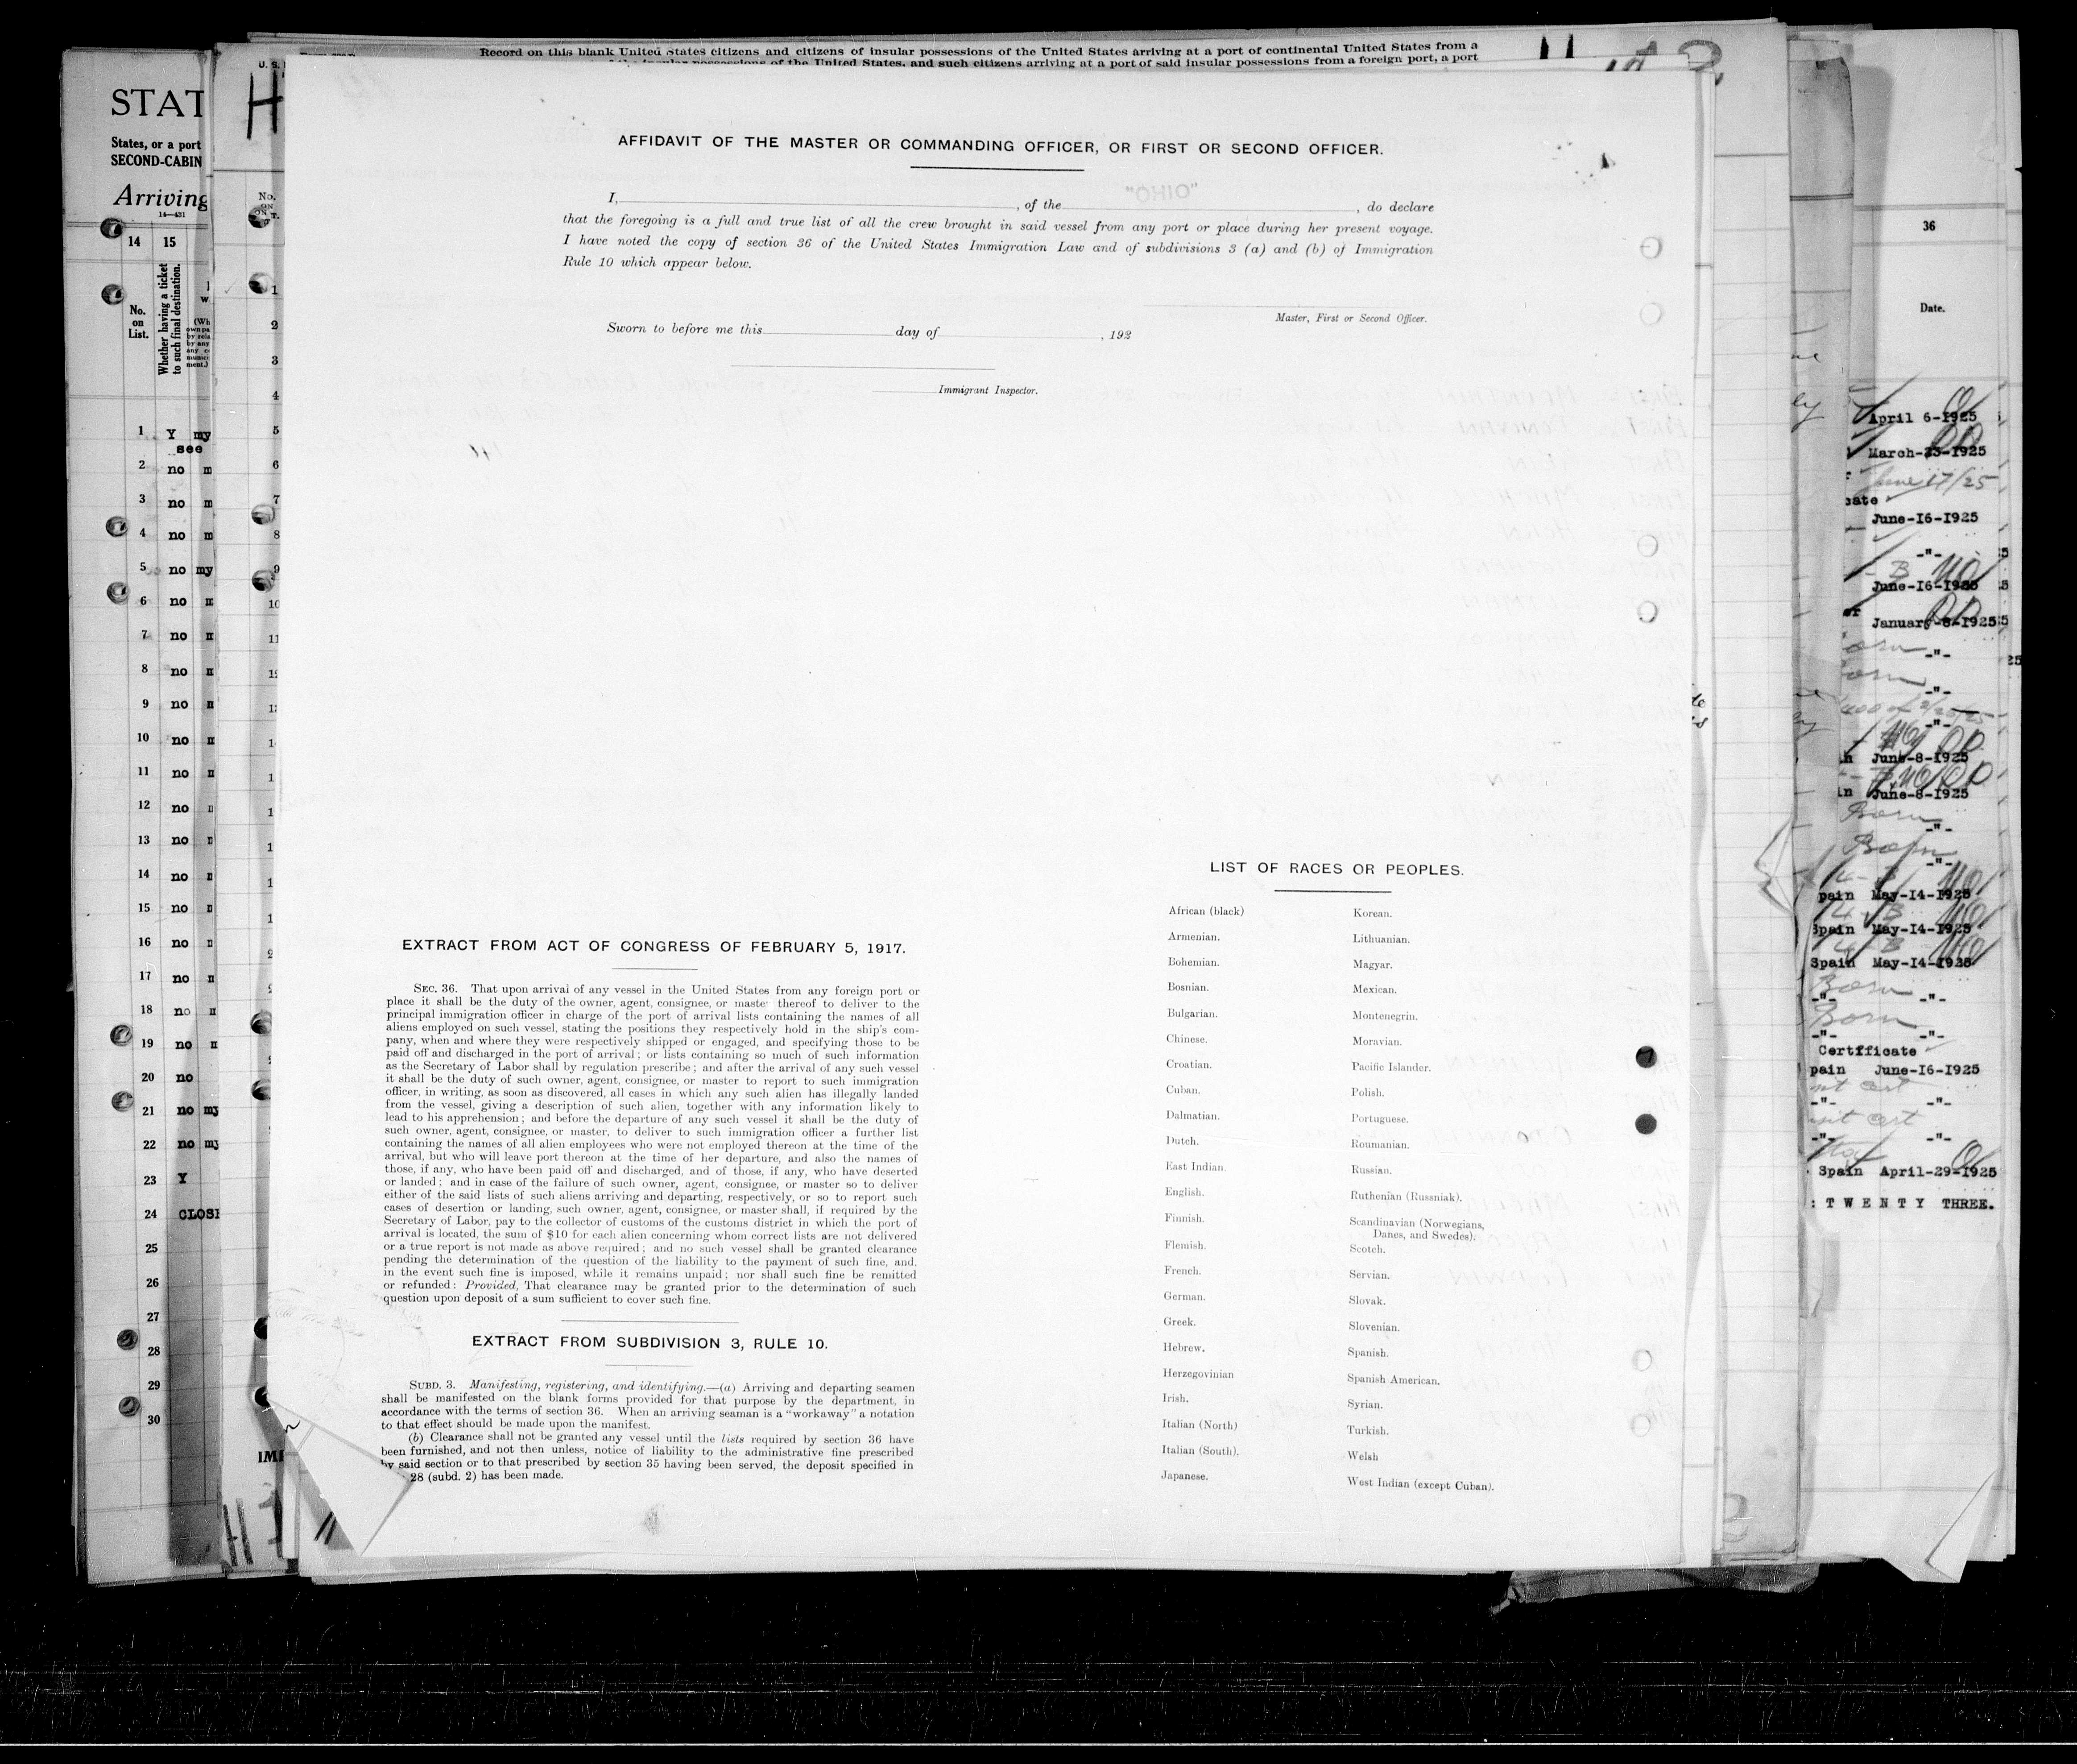 Record on this blank United States citizens and citizens of insular possessions of the United States arriving at a port of continental United States from a
possessions of the United States, and such citizens arriving at a port of said insular possessions from a foreign port, a port
STAT
States, or a port
SECOND-CABIN
Arriving
14—431
14 15
No.
on
List.
Whether having a ticket
to such final destination.
1 Y my
see
2 no m
3 no m
4 no m
5 no my
6 no m
7 no
8 no
9 no
10 no
11 no
12 no
13 no
14 no
15 no
16 no
17 no
18 no
19 no
20 no
21 no my
22 no my
23 Y
24 CLOSE
25
26
27
28
29
30
U. S.
H
No.
ON
1
2
3
4
5
6
7
8
9
10
11
AFFIDAVIT OF THE MASTER OR COMMANDING OFFICER, OR FIRST OR SECOND OFFICER.
"OHIO"
I, , of the , do declare
that the foregoing is a full and true list of all the crew brought in said vessel from any port or place during her present voyage.
I have noted the copy of section 36 of the United States Immigration Law and of subdivisions 3 (a) and (b) of Immigration
Rule 10 which appear below.
Master, First or Second Officer.
Sworn to before me this day of , 192
Immigrant Inspector.
EXTRACT FROM ACT OF CONGRESS OF FEBRUARY 5, 1917.
SEC. 36. That upon arrival of any vessel in the United States from any foreign port or
place it shall be the duty of the owner, agent, consignee, or maste thereof to deliver to the
principal immigration officer in charge of the port of arrival lists containing the names of all
aliens employed on such vessel, stating the positions they respectively hold in the ship's com-
pany, when and where they were respectively shipped or engaged, and specifying those to be
paid off and discharged in the port of arrival; or lists containing so much of such information
as the Secretary of Labor shall by regulation prescribe; and after the arrival of any such vessel
it shall be the duty of such owner, agent, consignee, or master to report to such immigration
officer, in writing, as soon as discovered, all cases in which any such alien has illegally landed
from the vessel, giving a description of such alien, together with any information likely to
lead to his apprehension; and before the departure of any such vessel it shall be the duty of
such owner, agent, consignee, or master, to deliver to such immigration officer a further list
containing the names of all alien employees who were not employed thereon at the time of the
arrival, but who will leave port thereon at the time of her departure, and also the names of
those, if any, who have been paid off and discharged, and of those, if any, who have deserted
or landed; and in case of the failure of such owner, agent, consignee, or master so to deliver
either of the said lists of such aliens arriving and departing, respectively, or so to report such
cases of desertion or landing, such owner, agent, consignee, or master shall, if required by the
Secretary of Labor, pay to the collector of customs of the customs district in which the port of
arrival is located, the sum of $10 for each alien concerning whom correct lists are not delivered
or a true report is not made as above required; and no such vessel shall be granted clearance
pending the determination of the question of the liability to the payment of such fine, and.
in the event such fine is imposed, while it remains unpaid; nor shall such fine be remitted
or refunded: Provided, That clearance may be granted prior to the determination of such
question upon deposit of a sum sufficient to cover such fine.
EXTRACT FROM SUBDIVISION 3, RULE 10.
SUBD. 3. Manifesting, registering, and identifying.—(a) Arriving and departing seamen
shall be manifested on the blank forms provided for that purpose by the department, in
accordance with the terms of section 36. When an arriving seaman is a "workaway" a notation
to that effect should be made upon the manifest.
(b) Clearance shall not be granted any vessel until the lists required by section 36 have
been furnished, and not then unless, notice of liability to the administrative fine prescribed
by said section or to that prescribed by section 35 having been served, the deposit specified in
28 (subd. 2) has been made.
LIST OF RACES OR PEOPLES.
African (black)
Armenian.
Bohemian.
Bosnian.
Bulgarian.
Chinese.
Croatian.
Cuban.
Dalmatian.
Dutch.
East Indian.
English.
Finnish.
Flemish.
French.
German.
Greek.
Hebrew.
Herzegovinian
Irish.
Italian (North)
Italian (South).
Japanese.
Korean.
Lithuanian.
Magyar.
Mexican.
Montenegrin.
Moravian.
Pacific Islander.
Polish.
Portuguese.
Roumanian.
Russian.
Ruthenian (Russniak).
Scandinavian (Norwegians,
Danes, and Swedes).
Scotch.
Servian.
Slovak.
Slovenian.
Spanish.
Spanish American.
Syrian.
Turkish.
Welsh
West Indian (except Cuban).
36
Date.
April 6-1925
March-23-1925
June 17/25
cate
June-16-1925
-"-
June-16-1925
January-8-1925
-"-
-"-
-"-
June-8-1925
in June-8-1925
Born
-"-
Born
-"-
pain May-14-1925
Spain May-14-1925
Spain May-14-1925
Born
-"- -"-
Born
-"- -"-
Certficate
pain June-16-1925
-"- -"-
-"- -"-
Spain April-29-1925
: TWENTY THREE.